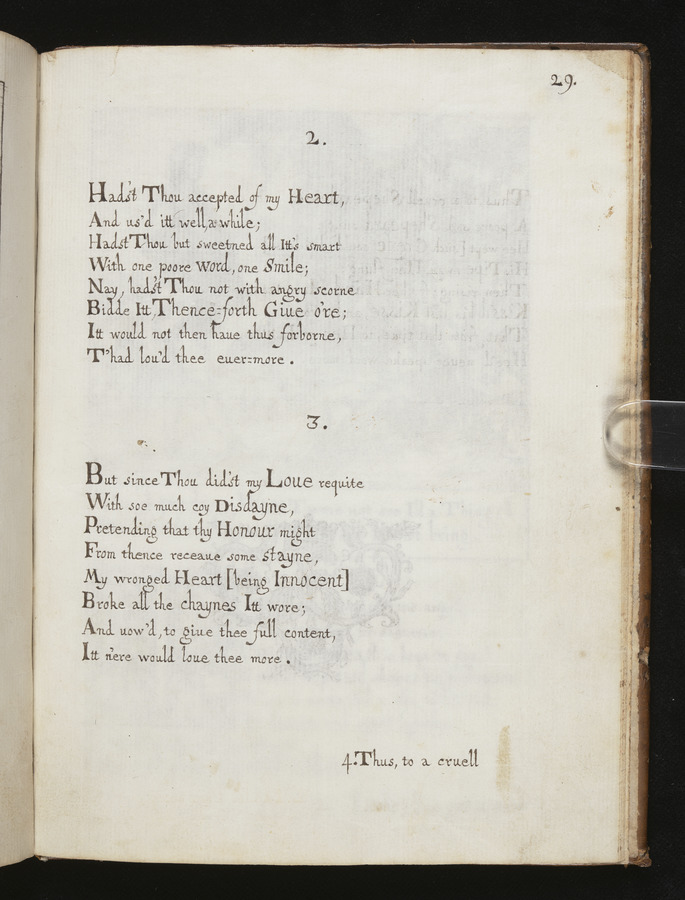 29.
2.
Hads't Thou accepted of my Heart,
And us'd itt well, a while;
Hadst Thou but sweetned all Itt's smart
With one poore Word, one Smile;
Nay, hads't Thou not with angry scorne
Bidde Itt Thence=forth Giue o're;
Itt would not then haue thus forborne,
T'had lou'd thee euer=more.
3.
But since Thou did'st my Loue requite
With soe much coy Disdayne,
Pretending that thy Honour might
From thence receaue some stayne,
My wronged Heart [being Innocent]
Broke all the chaynes Itt wore;
And uow'd, to giue thee full content,
Itt n'ere would loue thee more.
4. Thus, to a cruell